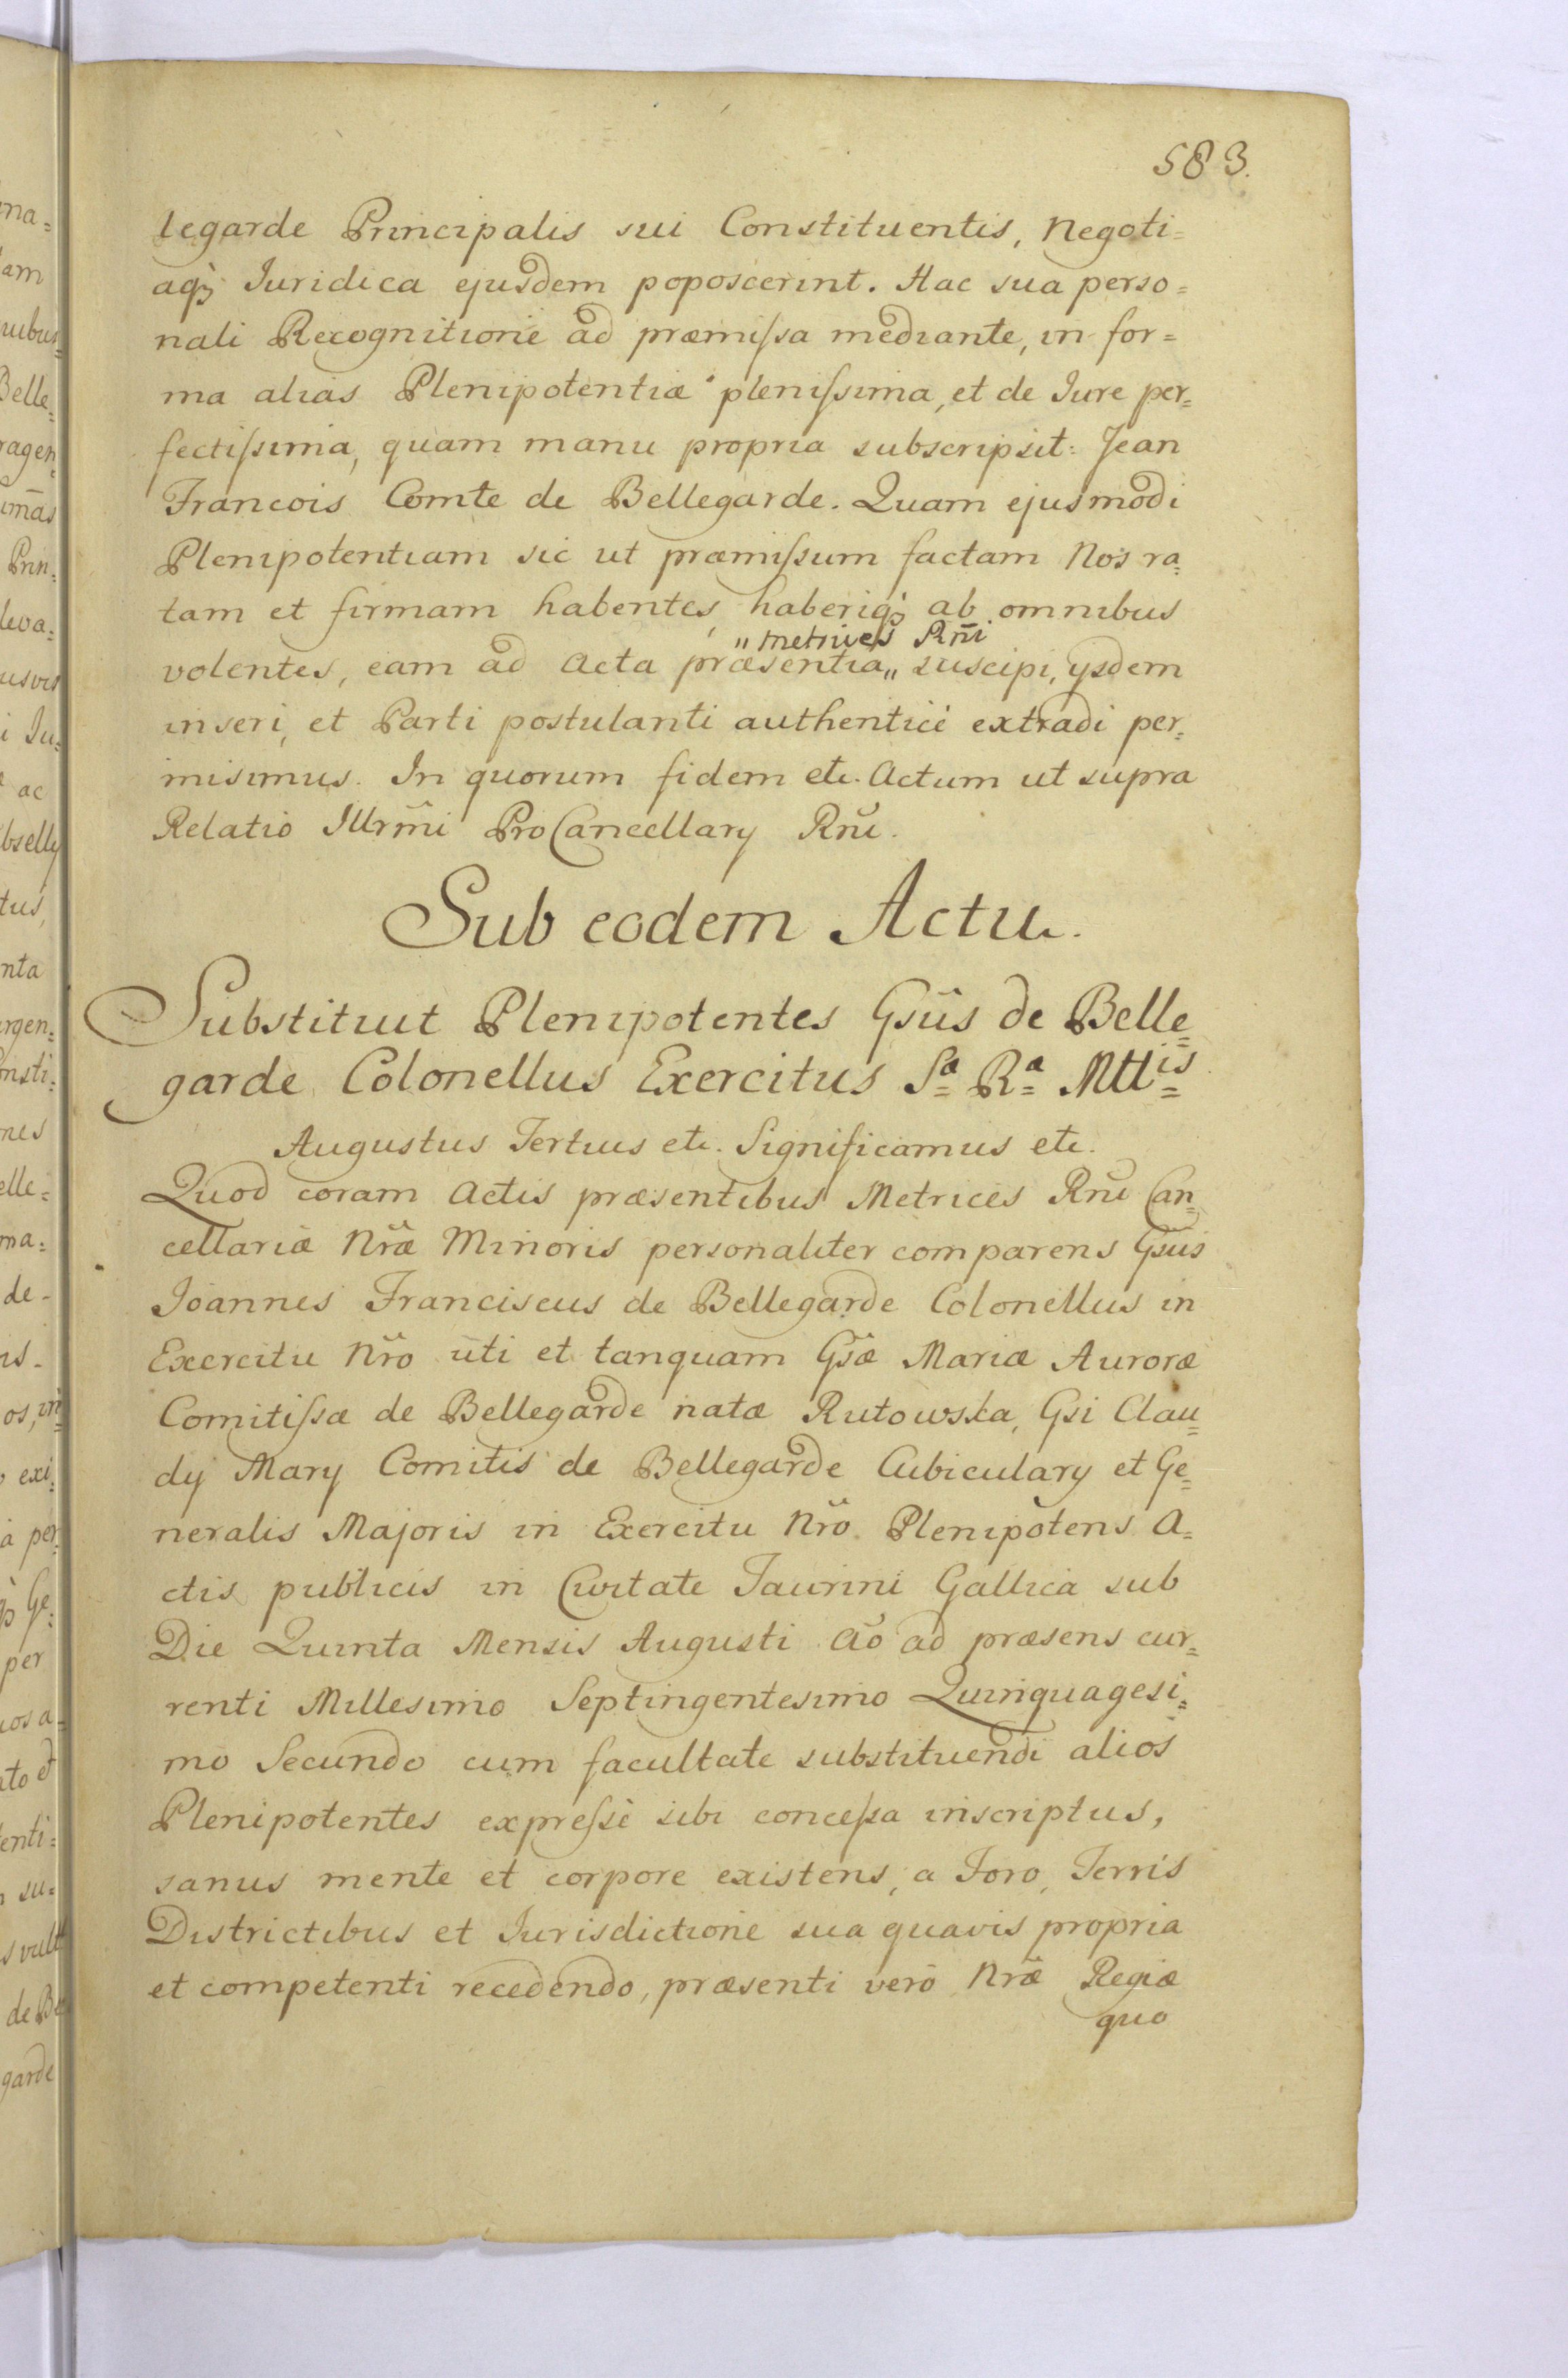 583.
legarde Principalis sui Constituentis, Negoti=
aq̃ Iuridica ejusdem poposcerint. Hac sua perso=
nali Recognitione ad præmiſsa mediante, in for=
ma alias Plenipotentiæ pleniſsima, et de Iure per=
fectiſsima, quam manu propria subscripsit: Jean
Francois Comte de Bellegarde. Quam ejusmodi
Plenipotentiam sic ut præmiſsum factam Nos ra=
tam et firmam habentes, haberiq̃ ab omnibus
„ Metrices Rñi
volentes, eam ad Acta præsentia „ suscipi, ysdem
inseri, et Parti postulanti authenticè extradi per=
misimus. In quorum fidem etc. Actum ut supra
Relatio Illrm̃i ProCancellary Rñi.
Sub eodem Actu.
Substituit Plenipotentes Gsũs de Belle=
garde Colonellus Exercitus Sᵃ Rᵃ Mttⁱˢ
Augustus Tertius etc. Significamus etc.
Quod coram Actis præsentibus Metrices Rñi Can=
cellariæ Nræ̃ Minoris personaliter comparens Gsũs
Joannes Franciscus de Bellegarde Colonellus in
Exercitu Nrõ uti et tanquam Gsæ̃ Mariæ Auroræ
Comitiſsæ de Bellegarde natæ Rutowska, Gsi Clau=
dy Mary Comitis de Bellegarde Cubiculary et Ge=
neralis Majoris in Exercitu Nrõ Plenipotens A=
ctis publicis in Civitate Taurini Gallica sub
Die Quinta Mensis Augusti Aõ ad præsens cur=
renti Millesimo Septingentesimo Quinquagesi=
mo Secundo cum facultate substituendi alios
Plenipotentes expreſsè sibi conceſsa inscriptus,
sanus mente et corpore existens, a Foro, Terris
Districtibus et Iurisdictione sua quavis propria
et competenti recedendo, præsenti verò Nræ̃ Regiæ
quo